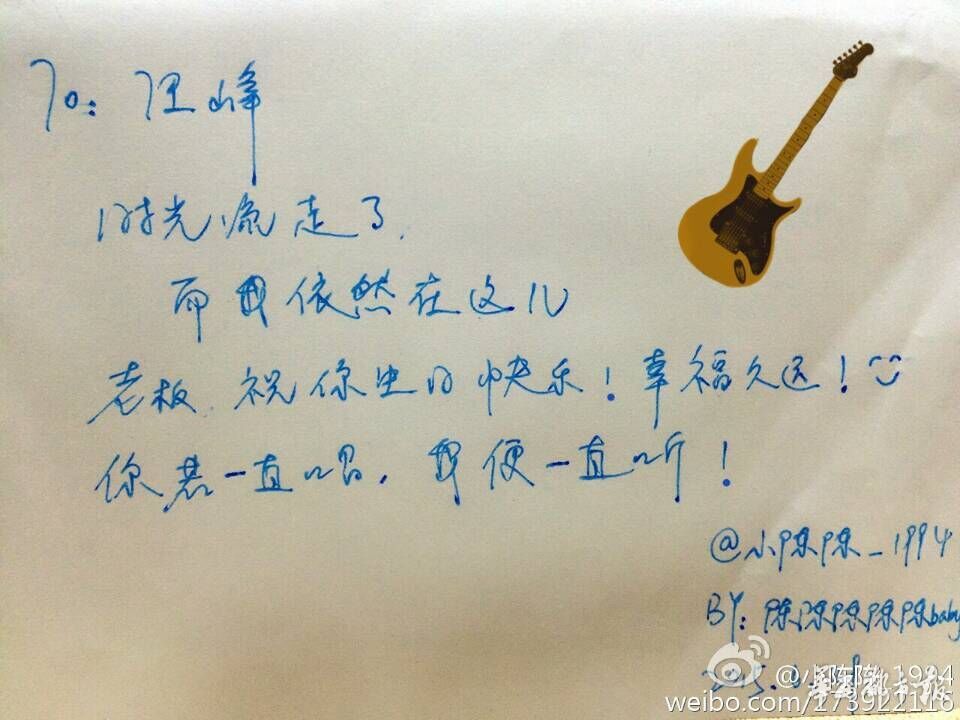 To: 汪峰
时光流走了.
而我依然在这儿
老板 祝你生日快乐！幸福久远！
你若一直唱，我便一直听！
@小陈陈_1994
BY: 陈陈陈陈陈baby
@小陈陈_1994
华西都市报
weibo.com/273922116